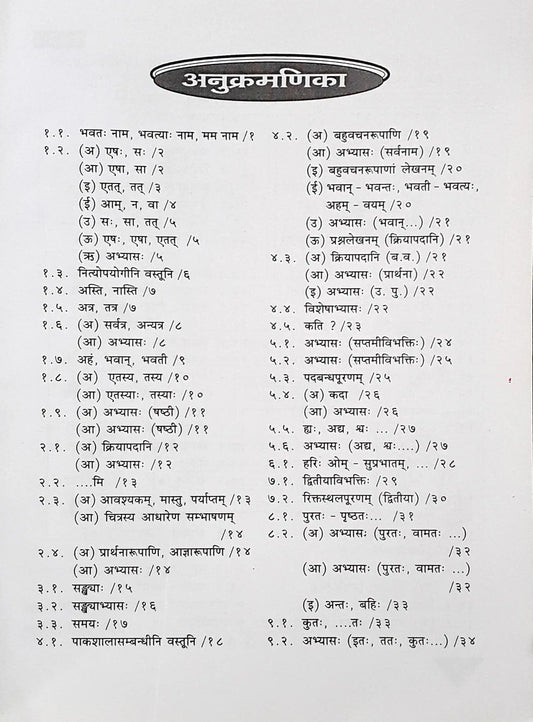 अनुक्रमणिका
१.१. भवतः नाम, भवत्याः नाम, मम नाम /१
१.२. (अ) एषः, सः /२
(आ) एषा, सा /२
(इ) एतत्, तत् /३
(ई) आम्, न, वा /४
(उ) सः, सा, तत् /५
(ऊ) एषः, एषा, एतत् /५
(ऋ) अभ्यासः /५
१.३. नित्योपयोगीनि वस्तूनि /६
१.४. अस्ति, नास्ति /७
१.५. अत्र, तत्र /७
१.६. (अ) सर्वत्र, अन्यत्र /८
(आ) अभ्यासः /८
१.७. अहं, भवान्, भवती /९
१.८. (अ) एतस्य, तस्य /१०
(आ) एतस्याः, तस्याः /१०
१.९. (अ) अभ्यासः (षष्ठी) /११
(आ) अभ्यासः (षष्ठी) /११
२.१. (अ) क्रियापदानि /१२
(आ) अभ्यासः /१२
२.२. ....मि /१३
२.३. (अ) आवश्यकम्, मास्तु, पर्याप्तम् /१३
(आ) चित्रस्य आधारेण सम्भाषणम्
/१४
२.४. (अ) प्रार्थनारूपाणि, आज्ञारूपाणि /१४
(आ) अभ्यासः /१४
३.१. सङ्ख्याः /१५
३.२. सङ्ख्याभ्यासः /१६
३.३. समयः /१७
४.१. पाकशालासम्बन्धीनि वस्तूनि /१८
४.२. (अ) बहुवचनरूपाणि /१९
(आ) अभ्यासः (सर्वनाम) /१९
(इ) बहुवचनरूपाणां लेखनम् /२०
(ई) भवान् - भवन्तः, भवती - भवत्यः,
अहम् - वयम् /२०
(उ) अभ्यासः (भवान्...) /२१
(ऊ) प्रश्नलेखनम् (क्रियापदानि) /२१
४.३. (अ) क्रियापदानि (ब.व.) /२१
(आ) अभ्यासः (प्रार्थना) /२२
(इ) अभ्यासः (उ. पु.) /२२
४.४. विशेषाभ्यासः /२२
४.५. कति ? /२३
५.१. अभ्यासः (सप्तमीविभक्तिः) /२४
५.२. अभ्यासः (सप्तमीविभक्तिः) /२५
५.३. पदबन्धपूरणम् /२५
५.४. (अ) कदा /२६
(आ) अभ्यासः /२६
५.५. ह्यः, अद्य, श्वः ... /२७
५.६. अभ्यासः (अद्य, श्वः....) /२७
६.१. हरिः ओम् - सुप्रभातम्, ... /२८
७.१. द्वितीयाविभक्तिः /२९
७.२. रिक्तस्थलपूरणम् (द्वितीया) /३०
८.१. पुरतः - पृष्ठतः... /३१
८.२. (अ) अभ्यासः (पुरतः, वामतः ...)
/३२
(आ) अभ्यासः (पुरतः, वामतः ...)
/३२
(इ) अन्तः, बहिः /३३
९.१. कुतः, ....तः /३३
९.२. अभ्यासः (इतः, ततः, कुतः...) /३४